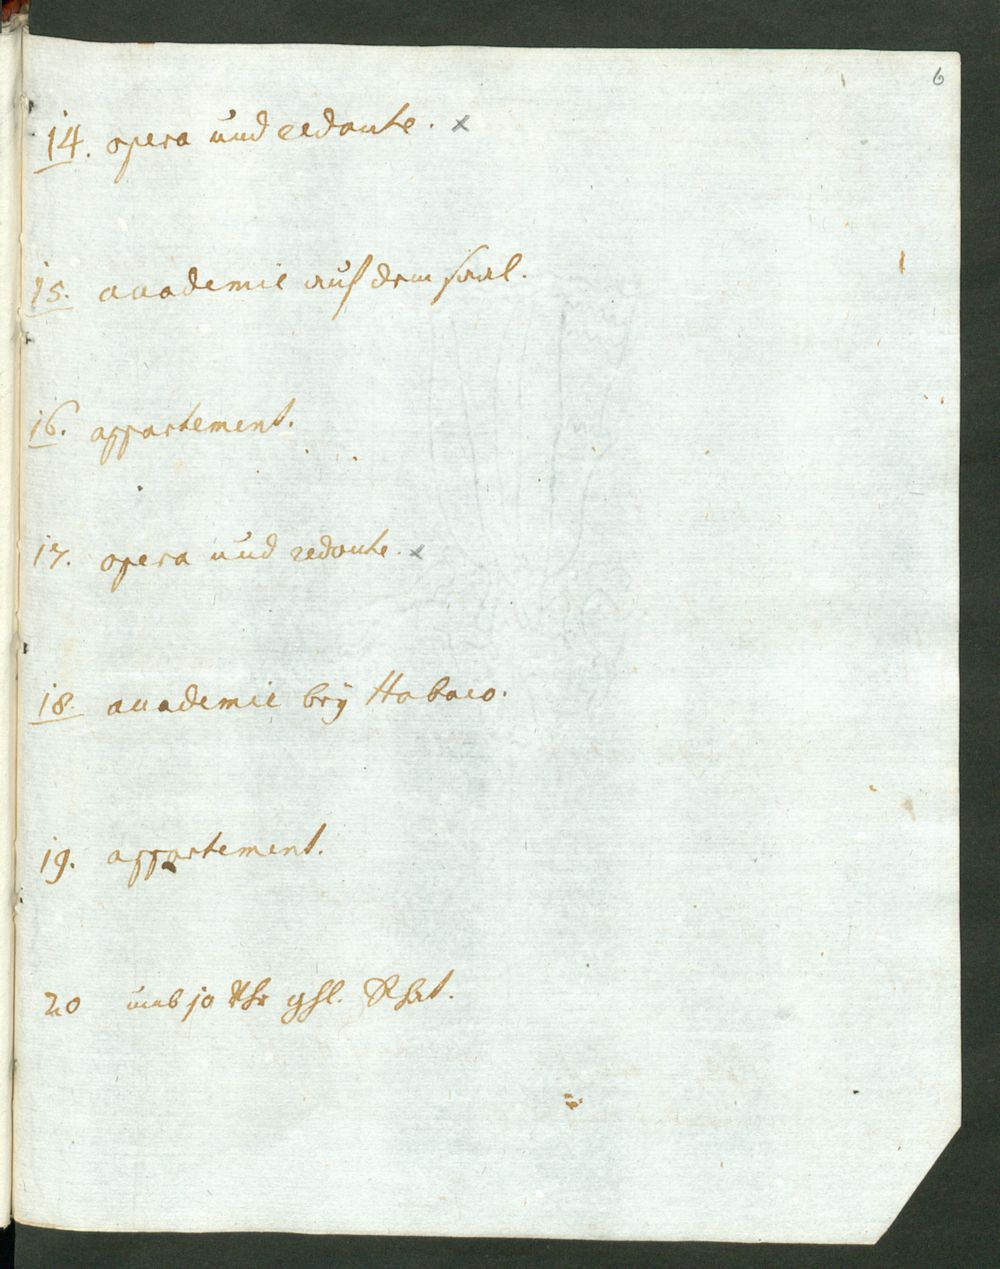 6
14. opera und redoute. x
15. accademie auf dem saal.
16. appartement.
17. opera und redoute. x
18. accademie beÿ Habaco.
19. appartement.
20 umb 10 Uhr ghl. Rhat.